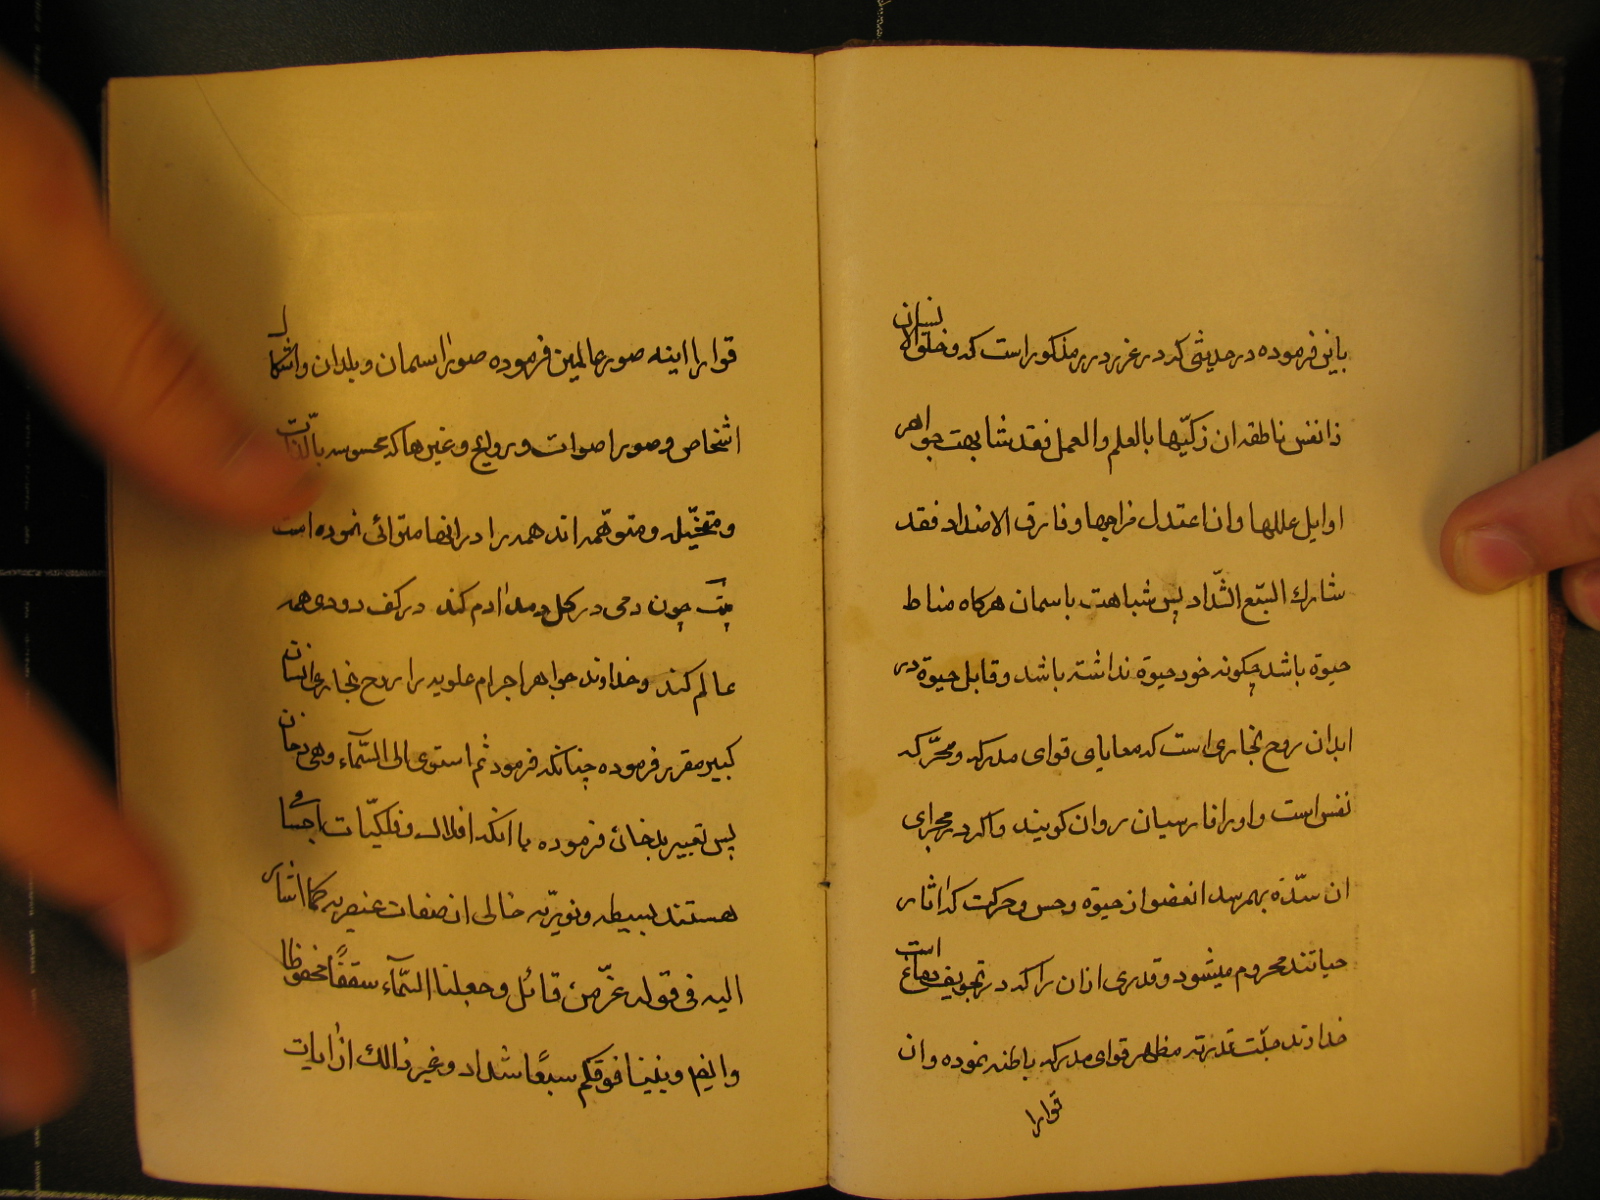 باین فرموده در حدیثی که در غرر درر مذکور است که و خلق الانسان
ذا نفس ناطقه ان زکّیها بالعلم والعمل فقد شابهت جواهر
اوایل عللها وان اعتدل مزاجها وفارق الاضداد فقد
شارك السّبع الشّداد پس شباهت باسمان هرکاه مناط
حیوة باشد چکونه خود حیوة نداشته باشد وقابل حیوة در
ابدان روح بخاری است که مطایای قوای مدرکه ومحرّکه
نفس است واورا فارسیان روان کویند واکر در مجرای
ان سدّۀ بهمرسد انعضو از حیوة وحس وحرکت که اثار
حیاتند محروم میشود وقدری ازان را که در تجویف دماغ است
خداوند جلّت قدرته مظهر قوای مدرکه باطنه نموده وان
قوارا
قوارا اینه صور عالمین فرموده صور اسمان وبلدان واشکال
اشخاص وصور اصوات وروایح وغیرها که محسوسه بالذّات
ومتخیّله ومتوهّمه اند همه را در انها متوائی نموده است
بیت چون دمی در کل دمد ادم کند در کف دودی همه
عالم کند وخداوند جواهر اجرام علویه را روح بخاری انسان
کبیر مقرر فرموده چنانکه فرمود ثم استوی الی السّمآء وهی دخان
پس تعبیر بدخان فرموده باانکه افلاك وفلکیّات اجسامی
هستند بسیطه ونوریّه خالی از صفات عنصریه کما اشار
الیه فی قوله عزّ من قائل وجعلنا السّمآء سقفًا محفوظا
وایضا وبنینا فوقکم سبعًا شداد وغیر ذالك از ایات